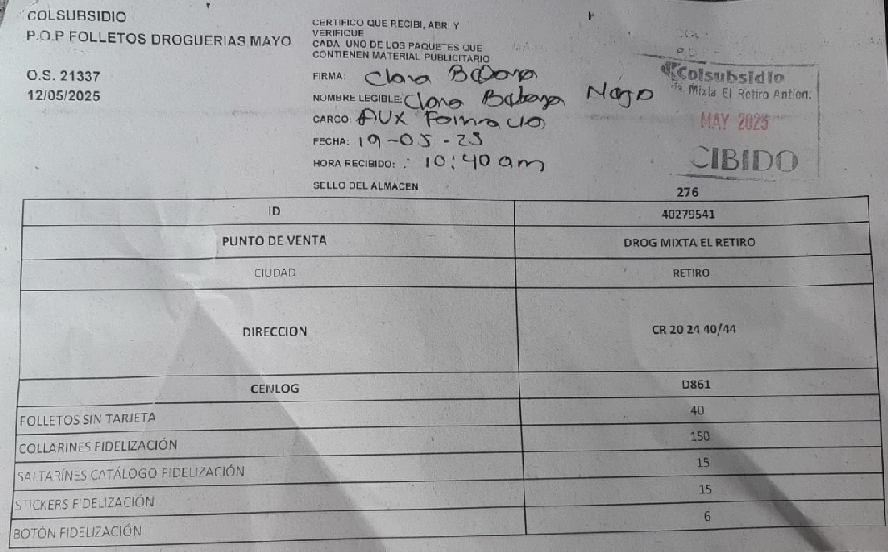 COLSUBSIDIO
P.O.P FOLLETOS DROGUERIAS MAYO
O.S. 21337
12/05/2025
CERTIFICO QUE RECIBI, ABRI Y
VERIFIQUE
CADA UNO DE LOS PAQUETES QUE
CONTIENEN MATERIAL PUBLICITARIO
FIRMA: Clara
NOMBRE LEGIBLE: Clara
CARGO: AUX Farmacia
FECHA: 19-05-25
HORA RECIBIDO: 10:40 am
SELLO DEL ALMACEN
Colsubsidio
Mixta El Retiro Antion.
MAY 2025
CIBIDO
276
ID 40279541
PUNTO DE VENTA DROG MIXTA EL RETIRO
CIUDAD RETIRO
DIRECCION CR 20 24 40/44
CENLOG D861
FOLLETOS SIN TARJETA 40
COLLARINES FIDELIZACIÓN 150
SALTARÍNES CATÁLOGO FIDELIZACIÓN 15
STICKERS FIDELIZACIÓN 15
BOTÓN FIDELIZACIÓN 6